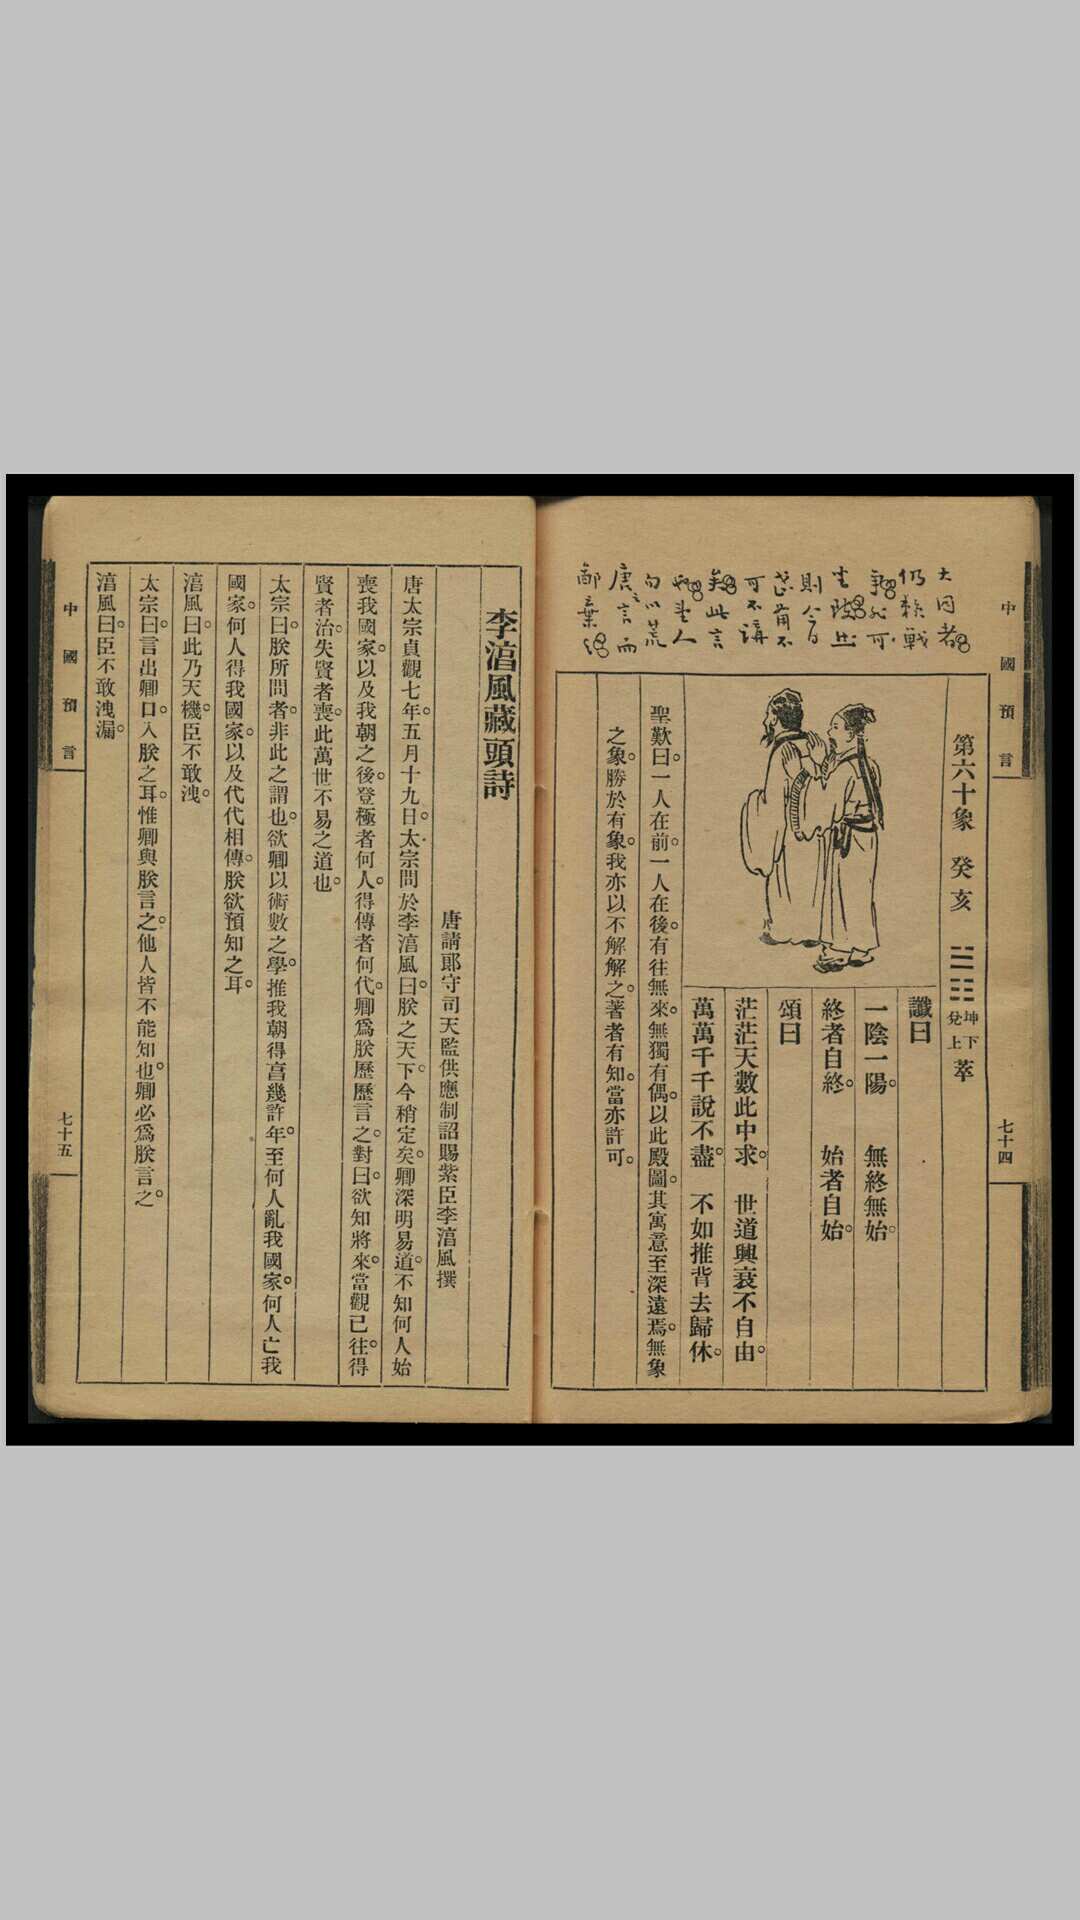 中國預言
七十四
第六十象 癸亥 坤下兌上 萃
讖曰
一陰一陽。 無終無始。
終者自終。 始者自始。
頌曰
茫茫天數此中求。 世道興衰不自由。
萬萬千千說不盡。 不如推背去歸休。
聖歎曰。一人在前。一人在後。有往無來。無獨有偶。以此殿圖。其寓意至深遠焉。無象
之象。勝於有象。我亦以不解解之。著者有知。當亦許可。
大同者
仍賴戰
則今日
可不講
矣此言
唐言而
鄙棄
李淳風藏頭詩
唐請郎守司天監供應制詔賜紫臣李淳風撰
唐太宗貞觀七年。五月十九日。太宗問於李淳風曰。朕之天下。今稍定矣。卿深明易道。不知何人始
喪我國家。以及我朝之後。登極者何人。得傳者何代。卿爲朕歷歷言之。對曰。欲知將來。當觀已往。得
賢者治。失賢者喪。此萬世不易之道也。
太宗曰。朕所問者。非此之謂也。欲卿以術數之學。推我朝得享幾許年。至何人亂我國家。何人亡我
國家。何人得我國家。以及代代相傳。朕欲預知之耳。
淳風曰。此乃天機。臣不敢洩。
太宗曰。言出卿口。入朕之耳。惟卿與朕言之。他人皆不能知也。卿必爲朕言之。
淳風曰。臣不敢洩漏。
中國預言
七十五